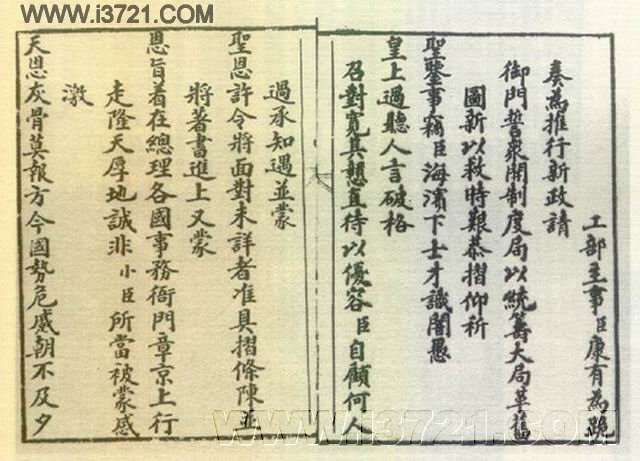 WWW.i3721.COM
工部主事臣康有為跪
奏為推行新政請
御門誓衆開制度局以統籌大局革舊
圖新以救時艱恭摺仰祈
聖鑒事竊臣海濱下士才識闇愚
皇上過聽人言破格
召對寬其戇直待以優容臣自顧何人
過承知遇並蒙
聖恩許令將面對未詳者准具摺條陳並
將著書進上又蒙
恩旨着在總理各國事務衙門章京上行
走隆天厚地誠非小臣所當被蒙感
激
天恩灰骨莫報方今國勢危蹙朝不及夕
www.i3721.com